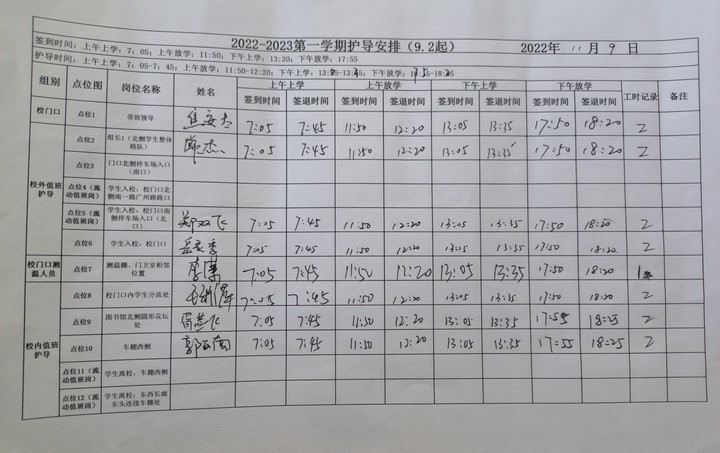 2022-2023第一学期护导安排（9.2起） 2022年 11 月 9 日
签到时间：上午上学：7：05；上午放学：11:50；下午上学：13:20；下午放学：17:55
护导时间：上午上学：7：05-7：45；上午放学：11:50-12:20；下午上学：13:05-13:35；下午放学：
组别 点位图 岗位名称 姓名 上午上学 上午放学 下午上学 下午放学 工时记录 备注
签到时间 签退时间 签到时间 签退时间 签到时间 签退时间 签到时间 签退时间
校门口 点位1 带班领导 7:05 7:45 11:50 12:20 13:05 13:35 17:50 18:20 2
校外值班护导 点位2 组长1（北侧学生整体路队） 7:05 7:45 11:50 12:20 13:05 13:35 17:50 18:20 2
点位3 门口北侧停车场入口（南口）
点位4（流动值班岗） 学生入校：校门口北侧南一路广州路路口
点位5（流动值班岗） 学生入校：校门口南侧停车场入口（北口） 郑双飞 7:05 7:45 11:50 12:20 13:05 13:35 17:50 18:20 2
点位6 学生入校：校门口 7:05 7:45 11:50 12:20 13:05 13:35 17:50 18:20 2
校门口测温人员 点位7 测温棚、门卫室相邻位置 7:05 7:45 11:50 12:20 13:05 13:35 17:50 18:20
点位8 校门口内学生分流处 7:05 7:45 11:50 12:20 13:05 13:35 17:50 18:20 2
校内值班护导 点位9 图书馆北侧圆形花坛处 7:05 7:45 11:50 12:20 13:05 13:35 17:55 18:25 2
点位10 车棚西侧 7:05 7:45 11:50 12:20 13:05 13:35 17:55 18:25 2
点位11（流动值班岗） 学生离校：车棚西侧
点位12（流动值班岗） 学生离校：东西长廊东头连接车棚处